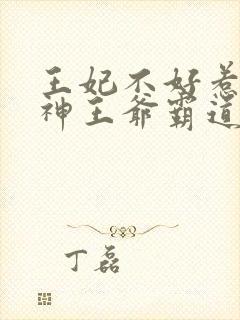 王妃不好惹
神王爷霸道
丁磊